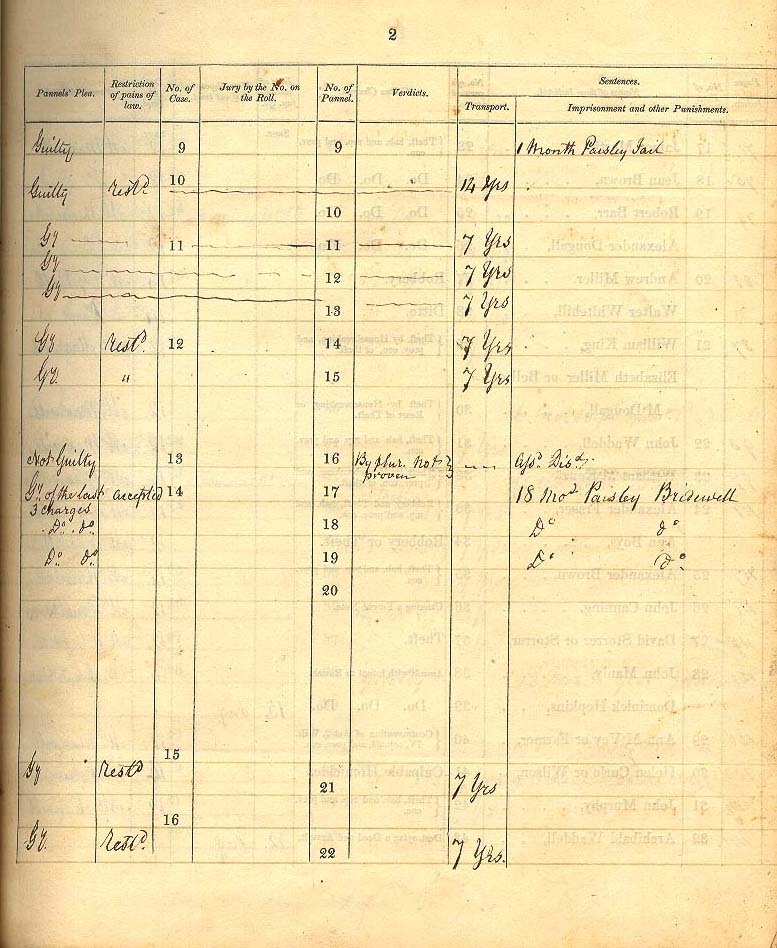 2
Pannels' Plea. Restriction of pains of law. No. of Case. Jury by the No. on the Roll. No. of Pannel. Verdicts. Sentences.
Transport. Imprisonment and other Punishments.
Guilty 9 9 1 Month Paisley Jail
Guilty Restd. 10 14 Yrs
10
Gy 11 11 7 Yrs
Gy 7 Yrs
12
Gy 7 Yrs
13
Gy. Restd. 12 14 7 Yrs
Gy. " 15 7 Yrs
Not Guilty 13 16 By plur. not proven Assd. Disd.
Gy. of the last 3 charges accepted 14 17 18 Mos. Paisley Bridewell
Do. do. 18 Do do
Do. do. 19 Do do.
20
15
Gy Restd
21 7 Yrs
16
Gy. Restd.
22 7 Yrs.